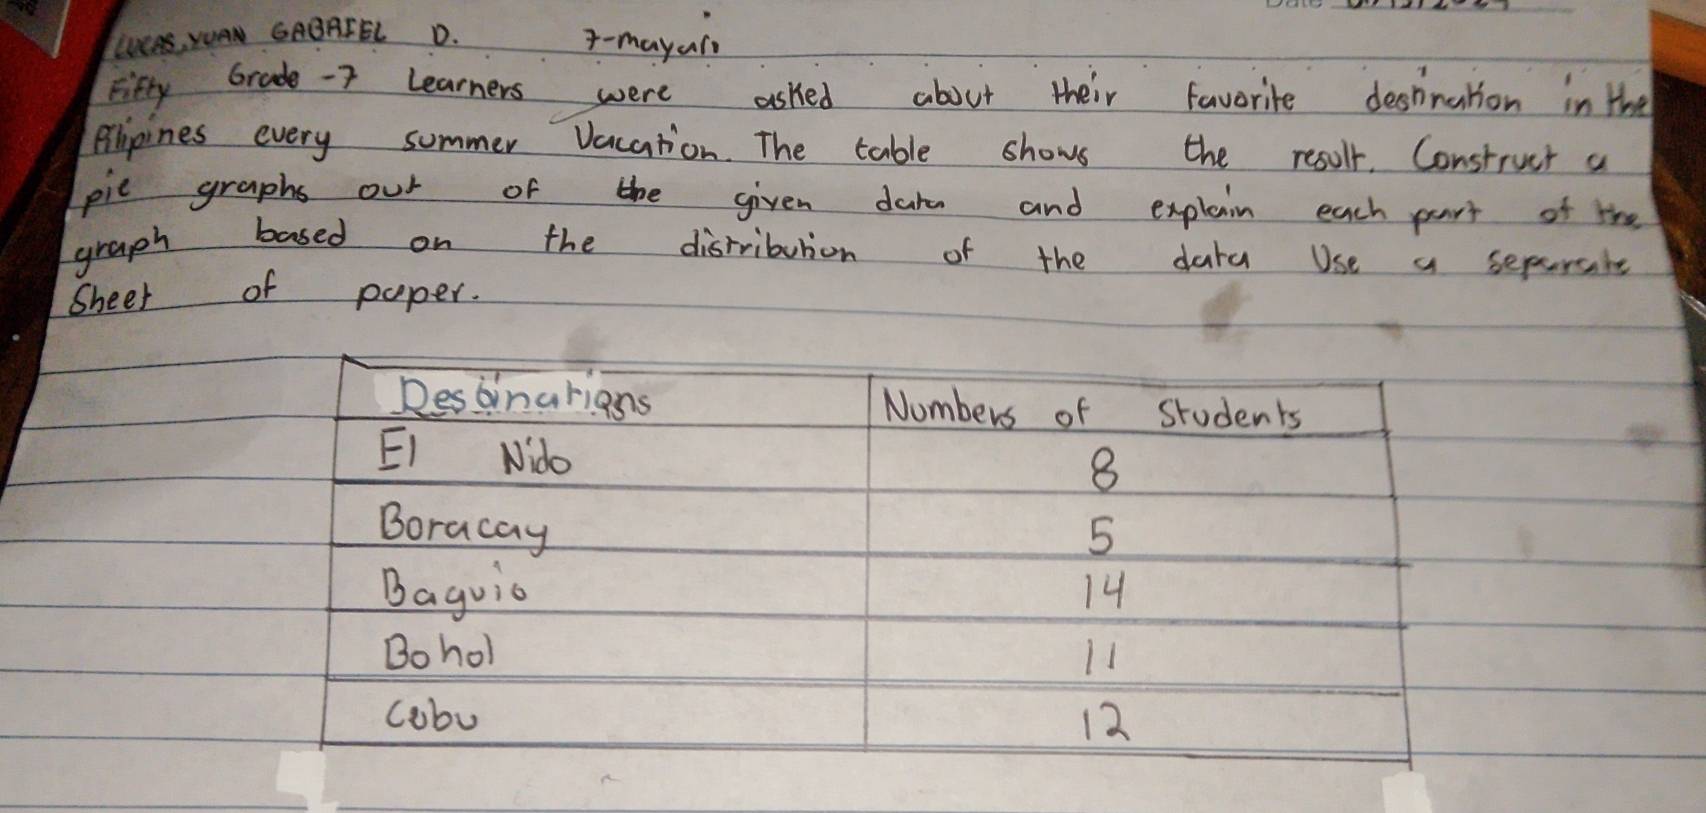 LUCAS, YUAN GABRIEL D. 7-mayari
Fifty Grade-7 Learners were asked about their favorite destination in the
Filipines every summer Vacation. The table shows the result. Construct a
pie graphs out of the given data and explain each part of the
graph based on the distribution of the data Use a separate
Sheet of paper.
Destinations Numbers of Students
El Nido 8
Boracay 5
Baguio 14
Bohol 11
Cebu 12